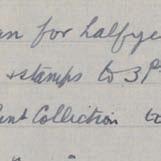 for halfye
+ stamps to 3P
Collection to